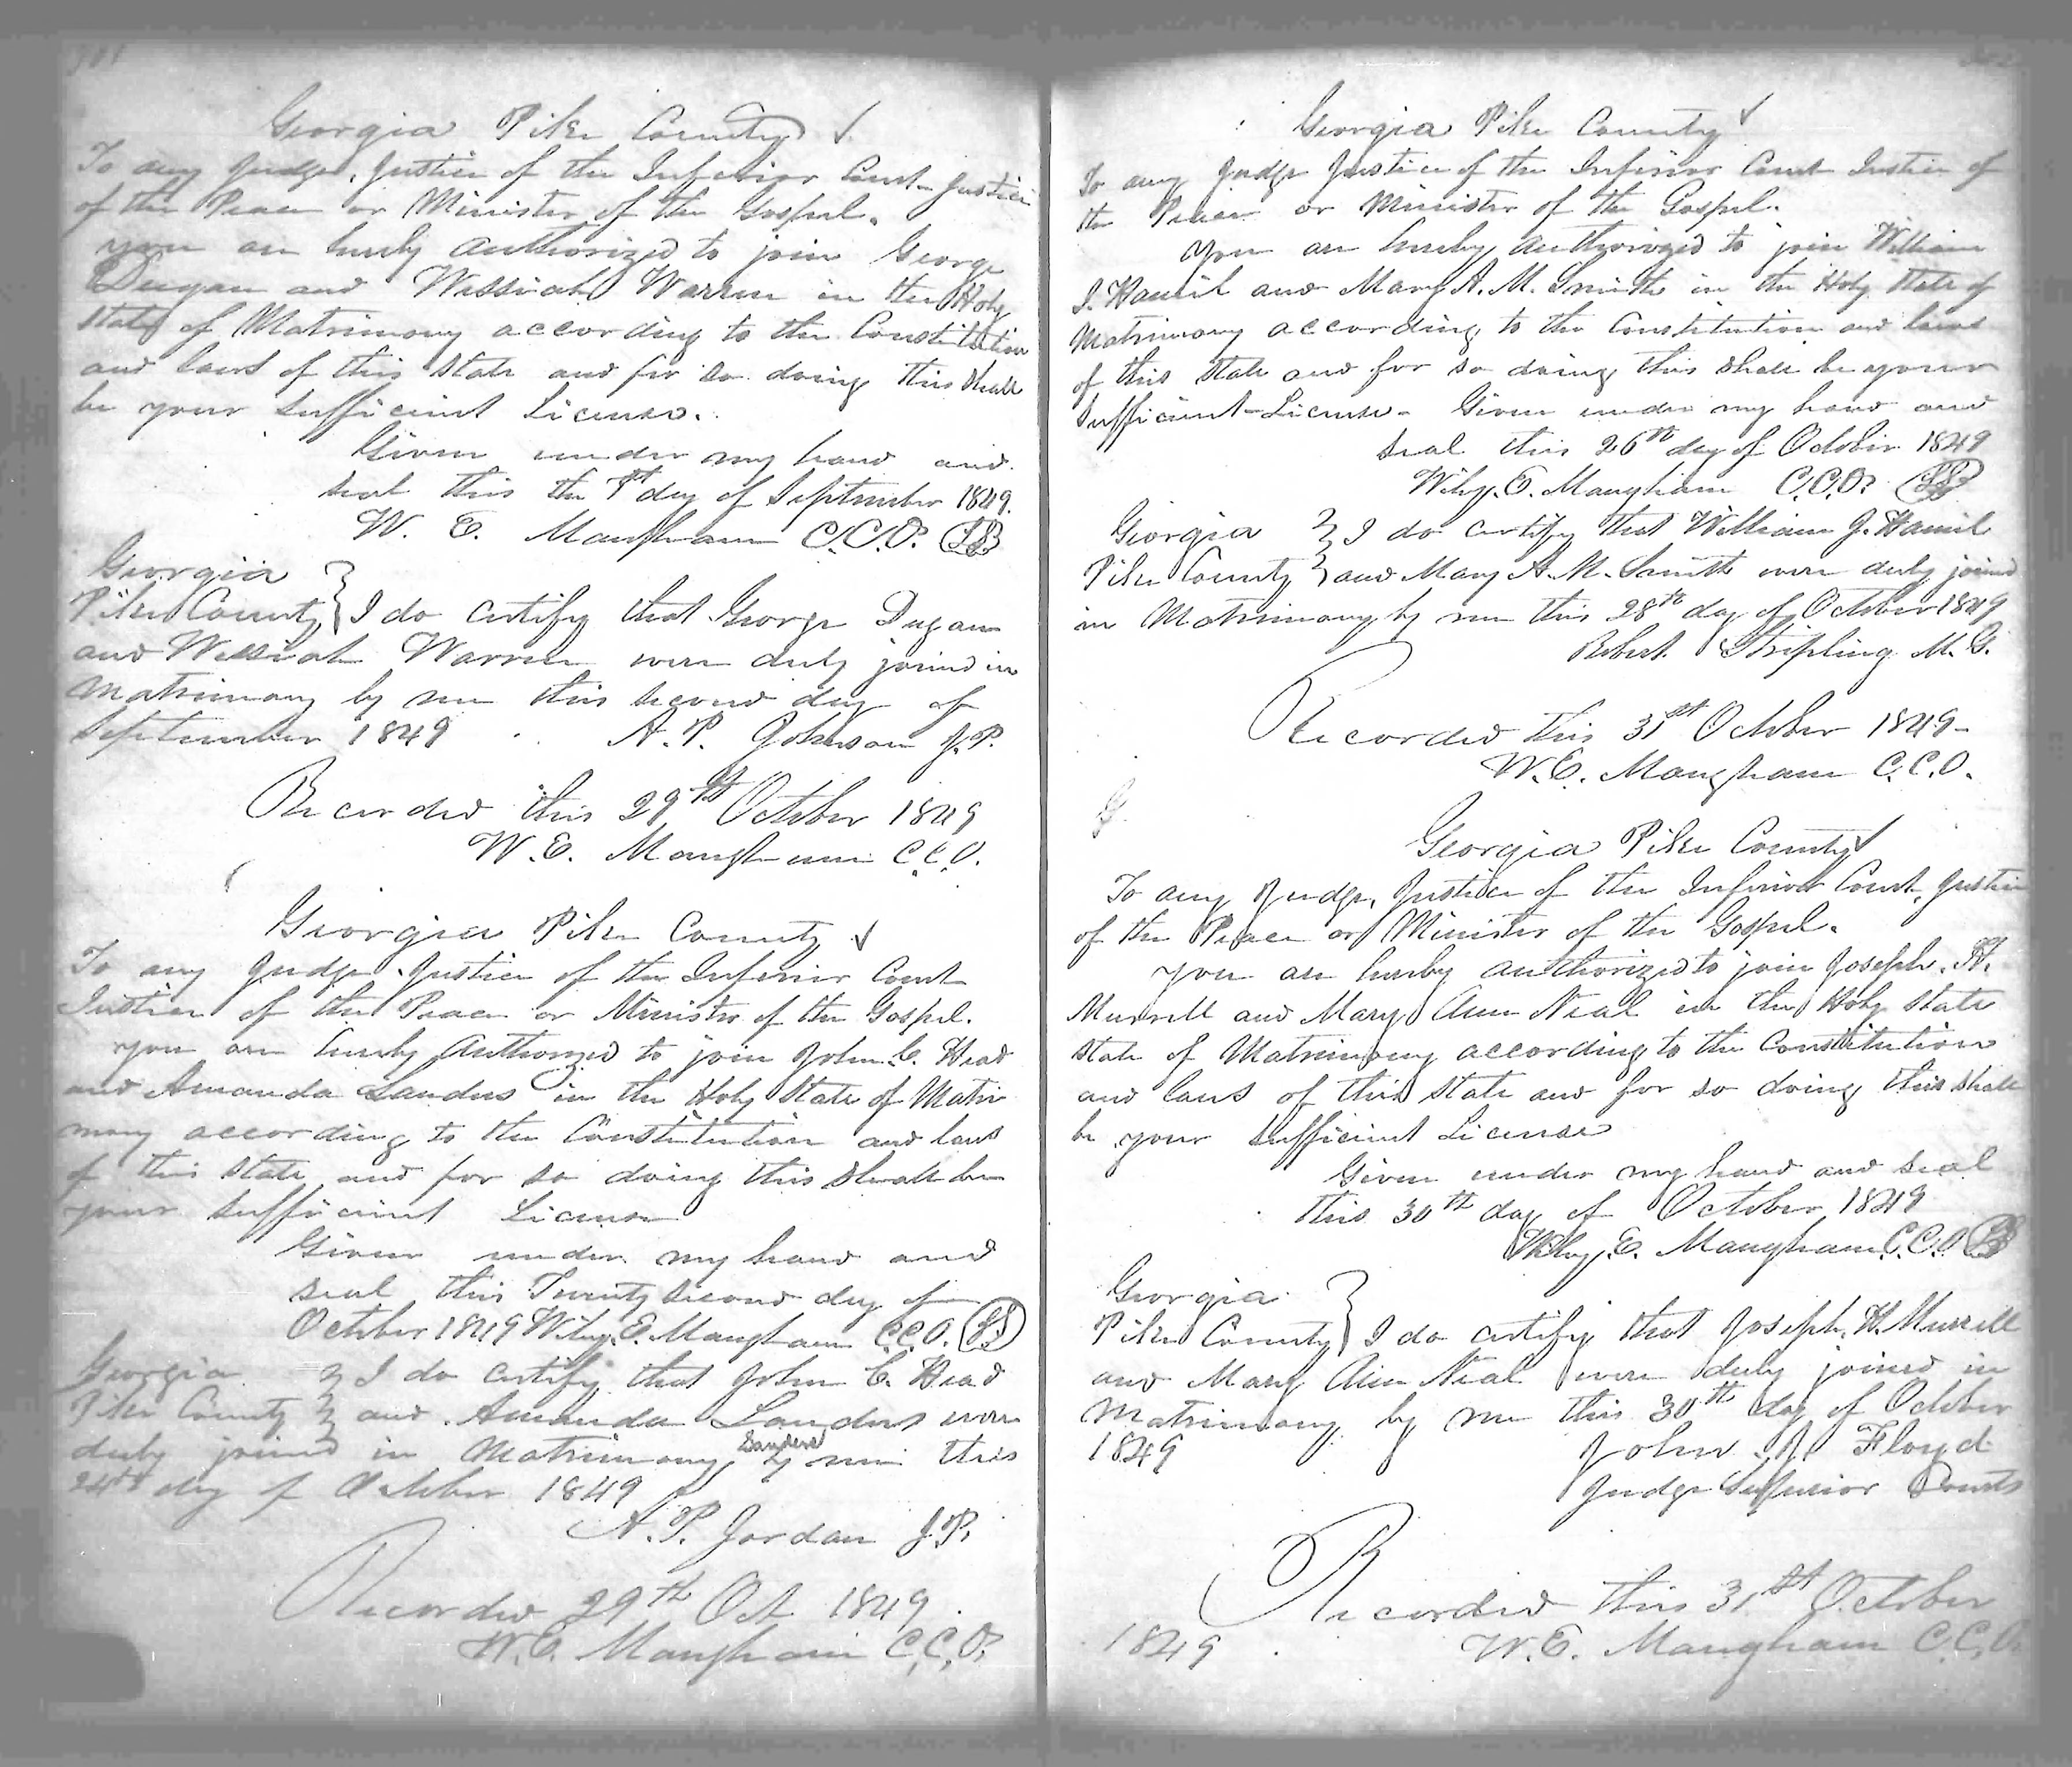 301
Georgia Pike County
To any Judge, Justice of the Inferior Court Justice
of the Peace or Minister of the Gospel.
you are hereby authorized to join George
Dugan and Wessiah Warren in the Holy
State of Matrimony according to the Constitution
and laws of this State and for so doing this shall
be your sufficient License.
Given under my hand and
seal this the 1st day of September 1849.
W. E. Mangham C.C.O. LS
Georgia
Pike County } I do certify that George Dugan
and Wessiah Warren were duly joined in
Matrimony by me this second day of
September 1849 A. P. Johnson J.P.
Recorded this 29th October 1849
W. E. Mangham C.C.O.
Georgia Pike County
To any Judge Justice of the Inferior Court
Justice of the Peace or Minister of the Gospel.
you are hereby Authorized to join John C. Head
and Amanda Landers in the Holy State of Matri
mony according to the Constitution and laws
of this State and for so doing this shall be
your sufficient License
Given under my hand and
seal this Twenty second day of
October 1849 Wiley E. Mangham C.C.O. LS
Georgia } I do certify that John C. Head
Pike County } and Amanda Landers were
Sanders
duly joined in Matrimony by me this
24th day of October 1849
A. P. Jordan J.P.
Recorded 29th Oct 1849.
W. E. Mangham C.C.O.
Georgia Pike County
To any Judge Justice of the Inferior Court Justice of
the Peace or Minister of the Gospel.
you are hereby authorized to join William
J. Hamil and Mary A. M. Smith in the Holy State of
Matrimony according to the Constitution and laws
of this State and for so doing this shall be your
sufficient License - Given under my hand and
seal this 26th day of October 1849
Wiley E. Mangham C.C.O. LS
Georgia } I do certify that William J. Hamil
Pike County } and Mary A. M. Smith were duly joined
in Matrimony by me this 28th day of October 1849
Robert Stripling M.G.
Recorded this 31st October 1849-
W. E. Mangham C.C.O.
Georgia Pike County
To any Judge, Justice of the Inferior Court, Justice
of the Peace or Minister of the Gospel.
you are hereby authorized to join Joseph H.
Murrell and Mary Ann Neal in the Holy State
State of Matrimony according to the Constitution
and laws of this State and for so doing this shall
be your sufficient License
Given under my hand and seal
this 30th day of October 1849
Wiley E. Mangham C.C.O. LS
Georgia
Pike County } I do certify that Joseph H. Murrell
and Mary Ann Neal were duly joined in
Matrimony by me this 30th day of October
1849 John J. Floyd
Judge Superior Courts
Recorded this 31st October
1849 W. E. Mangham C.C.O.